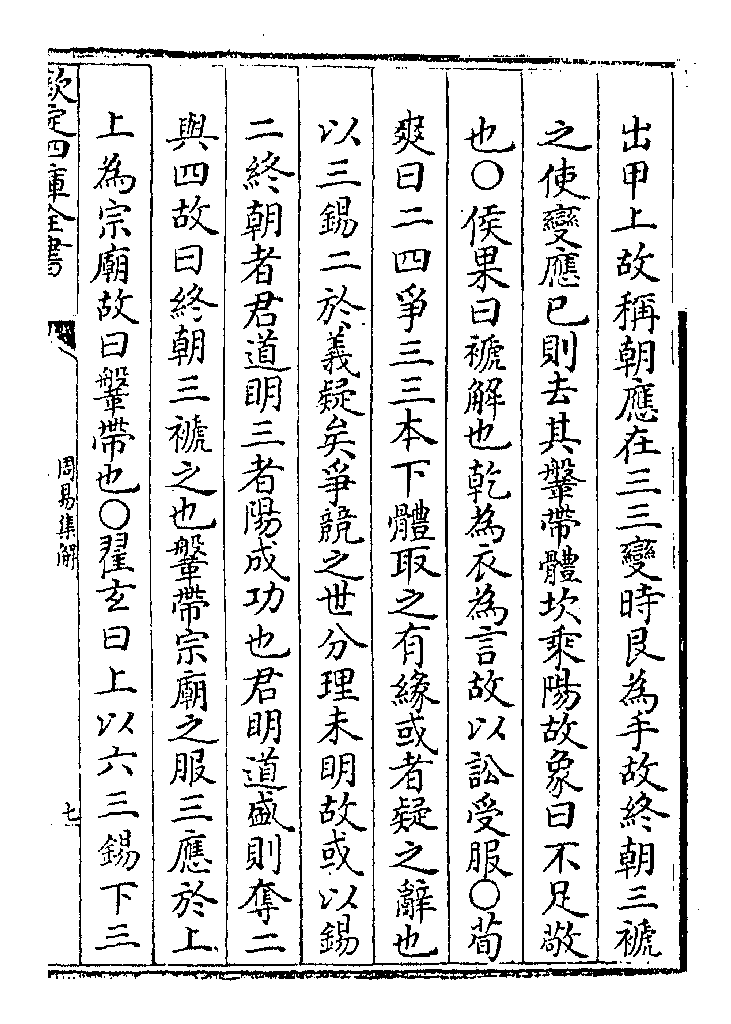 出甲上故稱朝應在三三變時艮為手故終朝三褫
之使變應已則去其鞶帶體坎乘陽故象曰不足敬
也○侯果曰褫解也乾為衣為言故以訟受服○荀
爽曰二四爭三三本下體取之有緣或者疑之辭也
以三錫二於義疑矣爭競之世分理未明故或以錫
二終朝者君道明三者陽成功也君明道盛則奪二
與四故曰終朝三褫之也鞶帶宗廟之服三應於上
上為宗廟故曰鞶帶也○翟玄曰上以六三錫下三
欽定四庫全書
周易集解
七